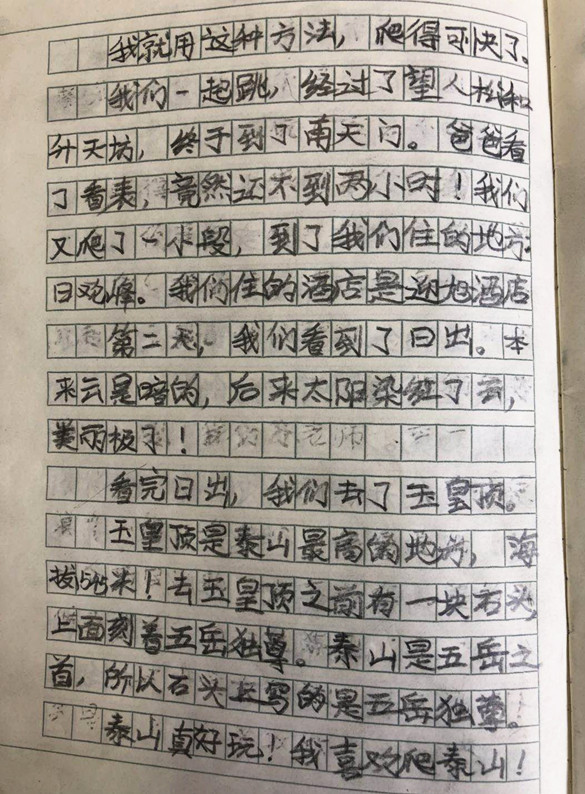 我就用这种方法，爬得可快了。
我们一起跳，经过了望人松和
升天坊，终于到了南天门。爸爸看
了看表，竟然还不到两小时！我们
又爬了一小段，到了我们住的地方
日观峰。我们住的酒店是迎旭酒店
第二天，我们看到了日出。本
来云是暗的，后来太阳染红了云，
美丽极了！
看完日出，我们去了玉皇顶。
玉皇顶是泰山最高的地方，海
拔1545米！去玉皇顶之前有一块石头，
上面刻着五岳独尊。泰山是五岳之
首，所以石头上写的是五岳独尊。
泰山真好玩！我喜欢爬泰山！